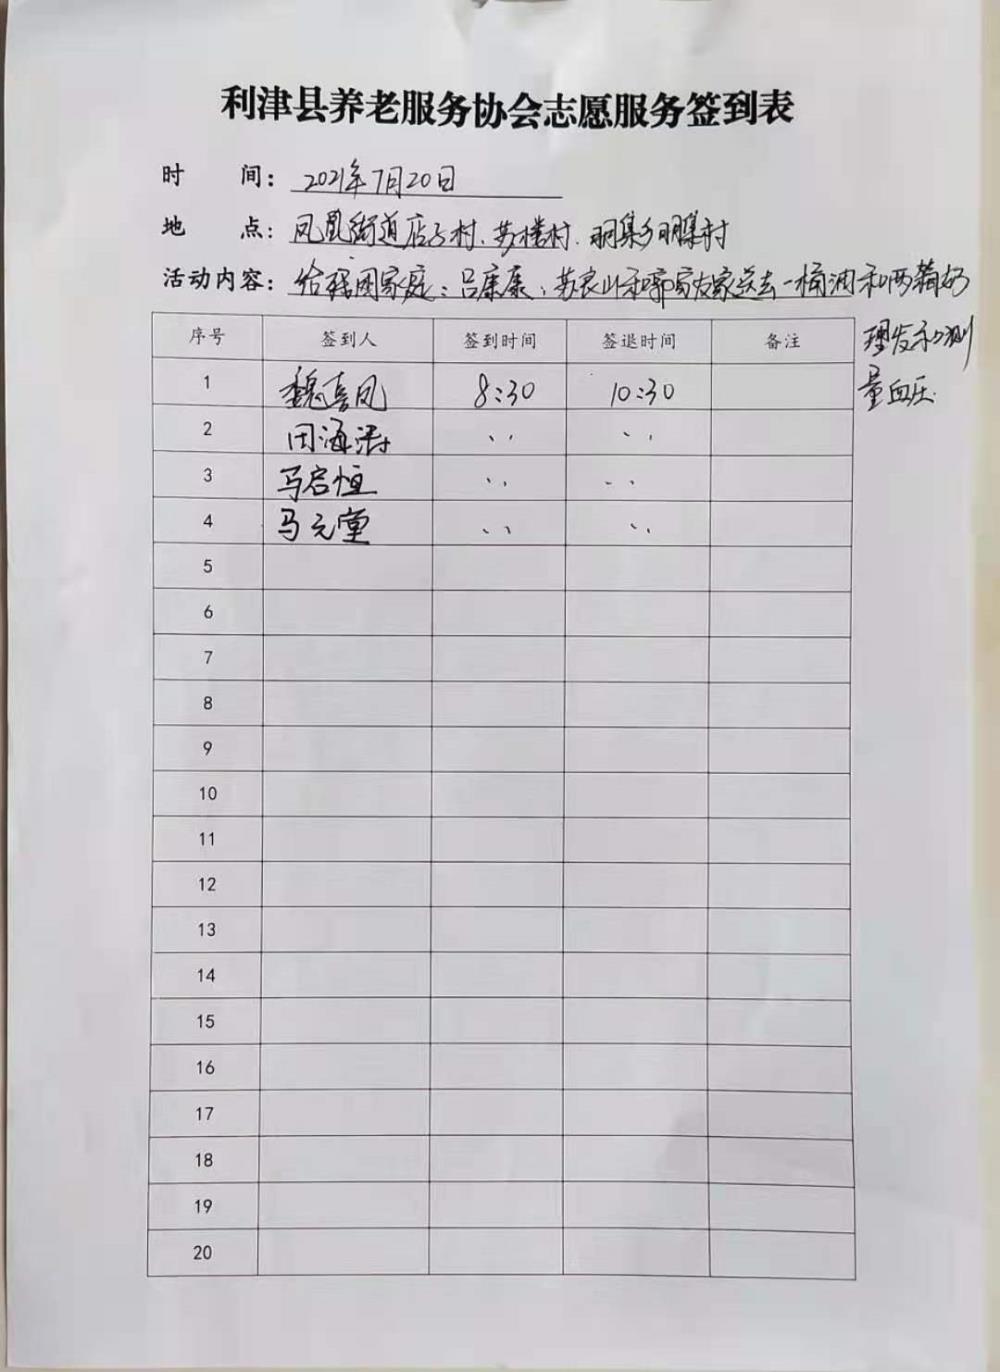 利津县养老服务协会志愿服务签到表
时 间: 2021年7月20日
地 点: 凤凰街道店子村、苏楼村、明集乡明集村
活动内容: 给困家庭:吕康康、苏良山和郭家友家送去一桶油和两箱奶
理发和测
量血压.
序号 签到人 签到时间 签退时间 备注
1 魏喜凤 8:30 10:30
2 田海涛 、、 、、
3 马启恒 、、 、、
4 马元堂 、、 、、
5
6
7
8
9
10
11
12
13
14
15
16
17
18
19
20